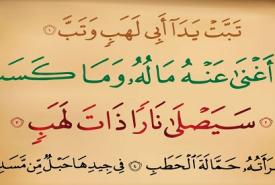 تَبَّتْ يَدَآ أَبِي لَهَبٍ وَتَبَّ ۝١
أَغْنَىٰ عَنْهُ مَالُهُۥ وَمَا كَسَبَ
سَيَصْلَىٰ نَارًا ذَاتَ لَهَبٍ ۝٣
حَمَّالَةَ ٱلْحَطَبِ ۝٤ فِي جِيدِهَا حَبْلٌ مِّن